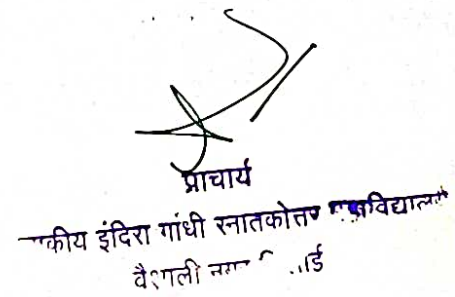 प्राचार्य
कीय इंदिरा गांधी स्नातकोत्त विद्यालय
वैशाली नगर